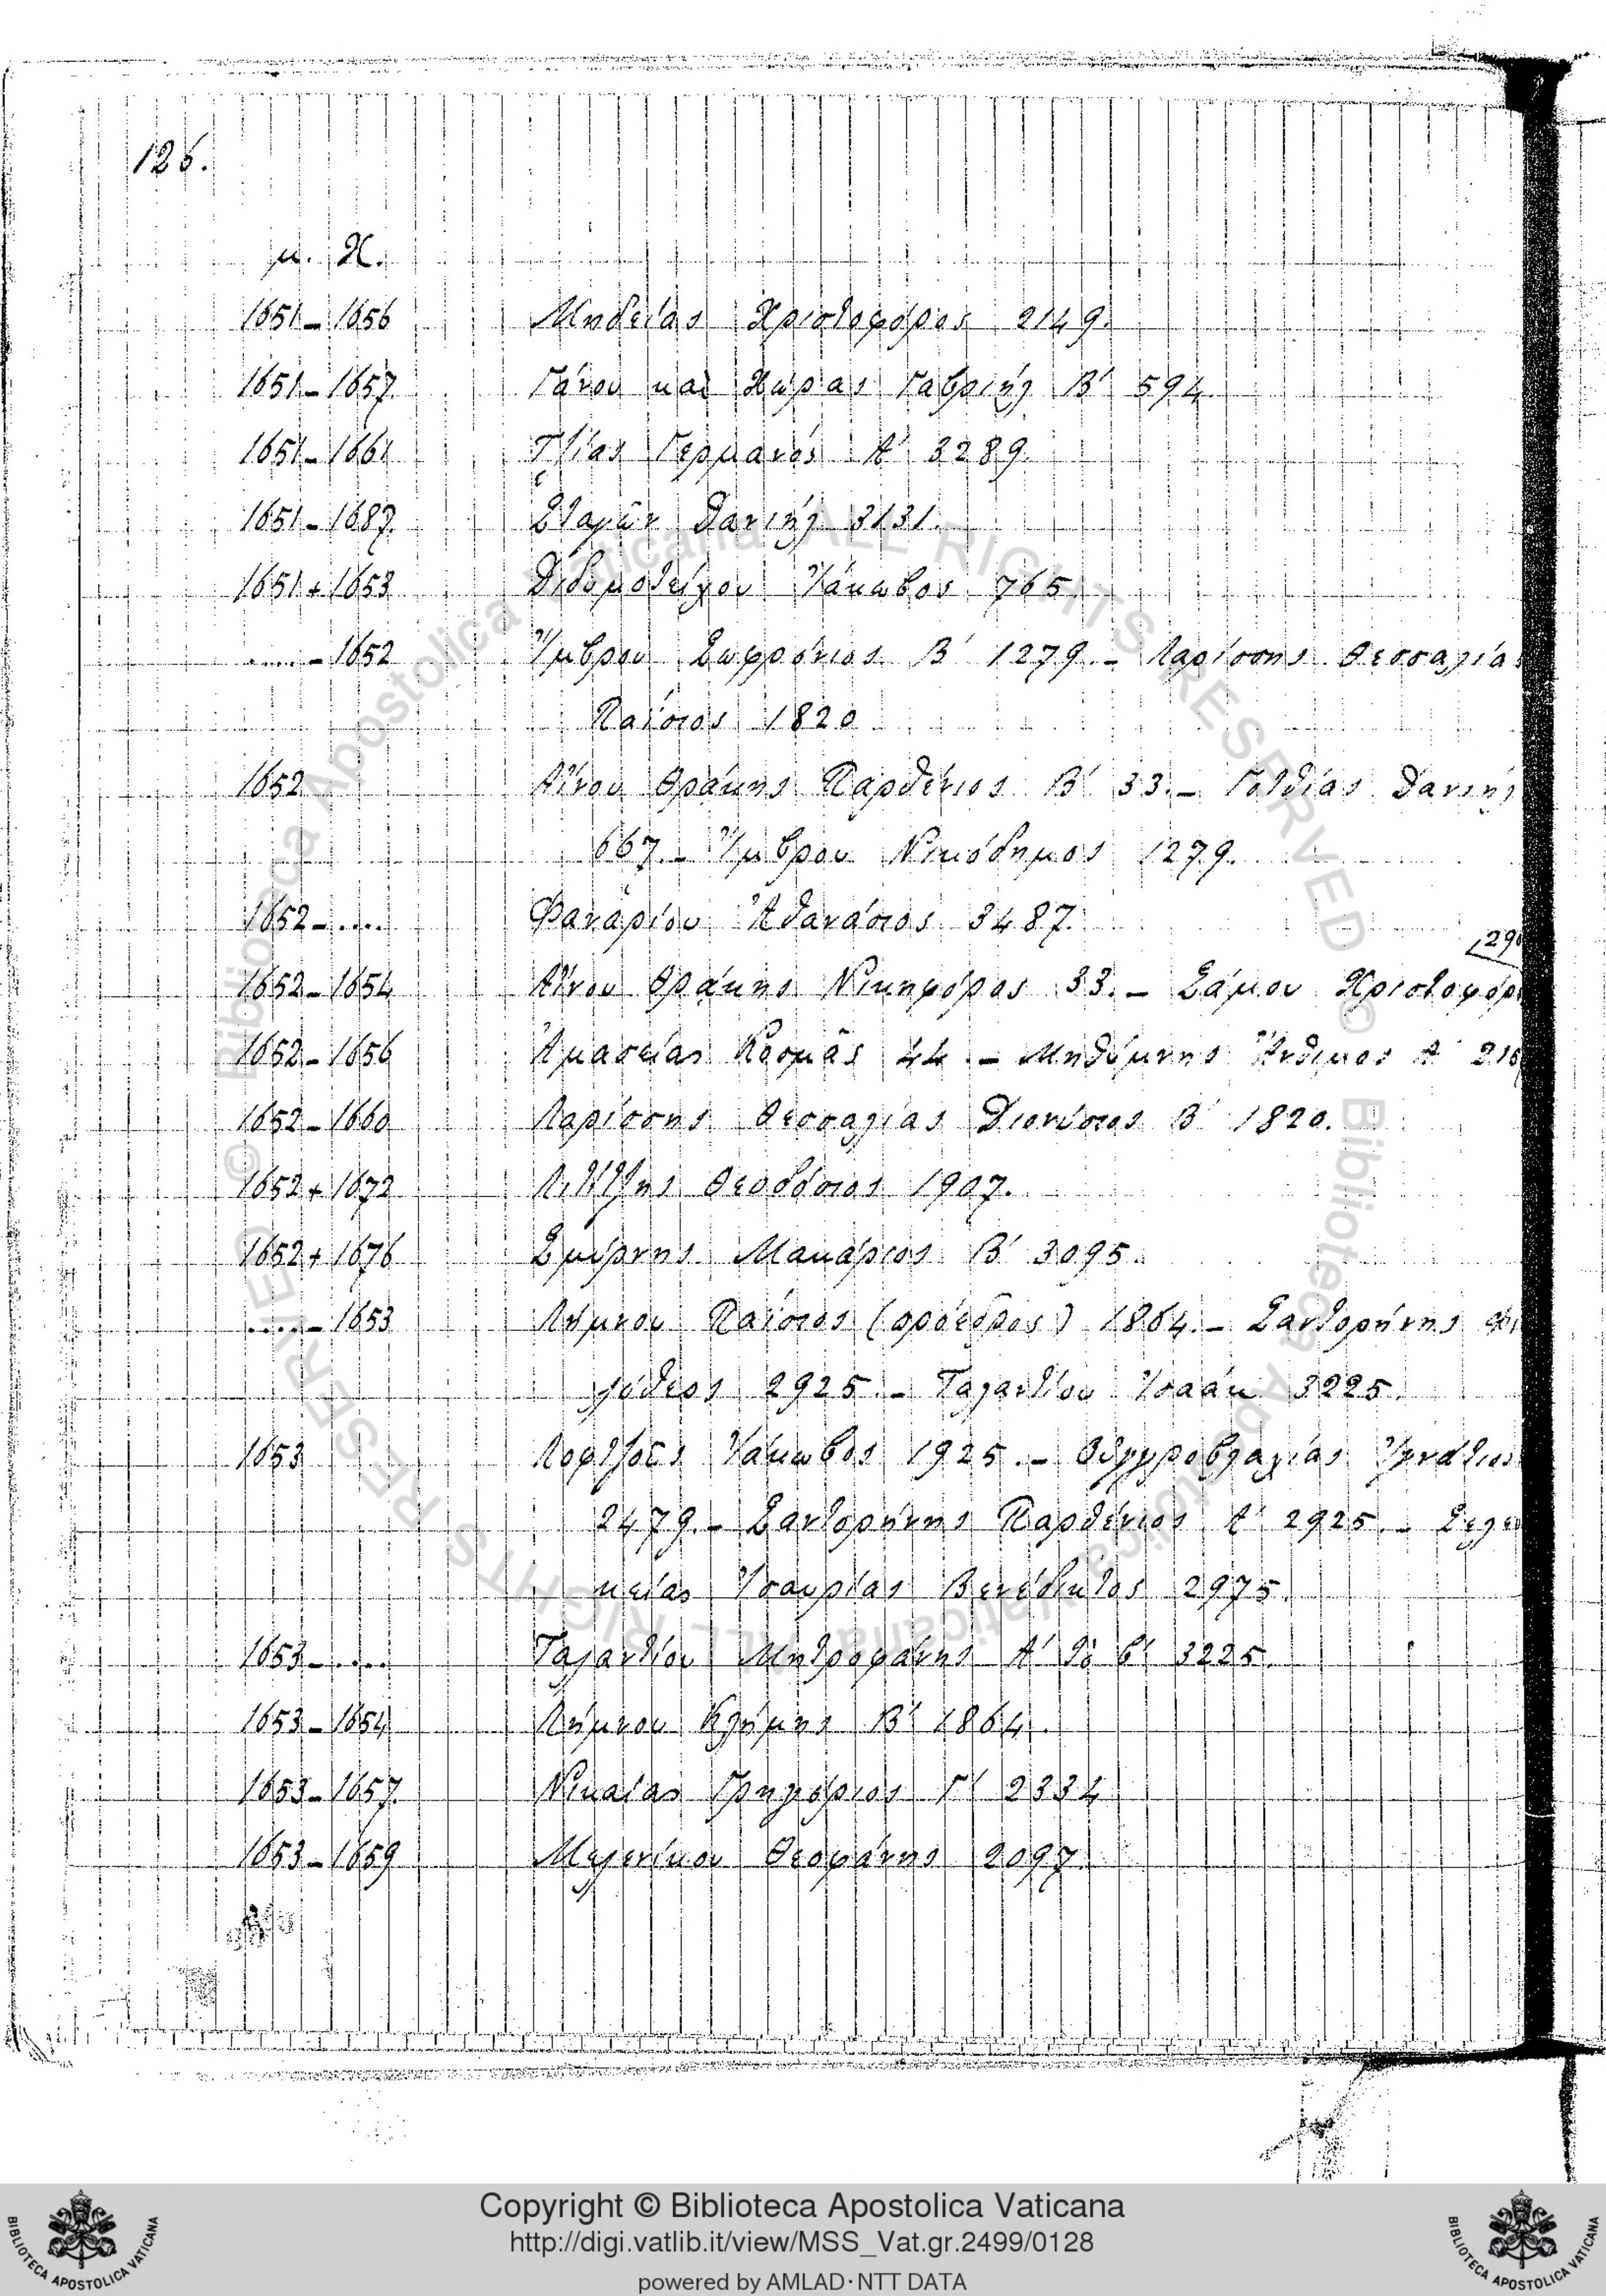 126.
μ. Χ.
1651 – 1656 Μηδείας Χριστοφόρος 2149.
1651 – 1657 Γάνου καὶ Χώρας Γαβριήλ Β' 594
1651 – 1661 Τζίας Γερμανός Α' 3289.
1651 – 1687 Σταγῶν Δανιήλ 3131.
1651 + 1653 Διδυμοτείχου Ἰάκωβος 765
..... – 1652 Ἴμβρου Σωφρόνιος Β' 1279 – Λαρίσσης Θεσσαλίας
Παΐσιος 1820
1652 Αἴνου Θράκης Παρθένιος Β' 33. – Γοτθίας Δανιήλ
667. – Ἴμβρου Νικόδημος 1279.
1652 – ..... Φαναρίου Ἀθανάσιος 3487.
290
1652 – 1654 Αἴνου Θράκης Νικηφόρος 33. – Σάμου Χριστοφόρ
1652 – 1656 Ἀμασείας Κοσμᾶς 44 – Μηθύμνης Ἄνθιμος Α' 216
1652 – 1660 Λαρίσσης Θεσσαλίας Διονύσιος Β' 1820.
1652 + 1672 Λιτίτζης Θεοδόσιος 1907.
1652 + 1676 Σμύρνης Μακάριος Β' 3095.
..... – 1653 Λήμνου Παΐσιος (πρόεδρος) 1864. – Σαντορήνης Φι
λόθεος 2925 – Ταλαντίου Ἰσαάκ 3225.
1653 Λοφτζοῦ Ἰάκωβος 1925. – Οὑγγροβλαχίας Ἰγνάτιος
2479. – Σαντορήνης Παρθένιος Α' 2925. – Σελευ
κείας Ἰσαυρίας Βενέδικτος 2975.
1653 – ..... Ταλαντίου Μητροφάνης Α' τὸ β' 3225.
1653 – 1654 Λήμνου Κλήμης Β' 1864.
1653 – 1657 Νικαίας Γρηγόριος Γ' 2334
1653 – 1659 Μελενίκου Θεοφάνης 2097
Copyright © Biblioteca Apostolica Vaticana
http://digi.vatlib.it/view/MSS_Vat.gr.2499/0128
powered by AMLAD·NTT DATA
BIBLIOTECA APOSTOLICA VATICANA
BIBLIOTECA APOSTOLICA VATICANA